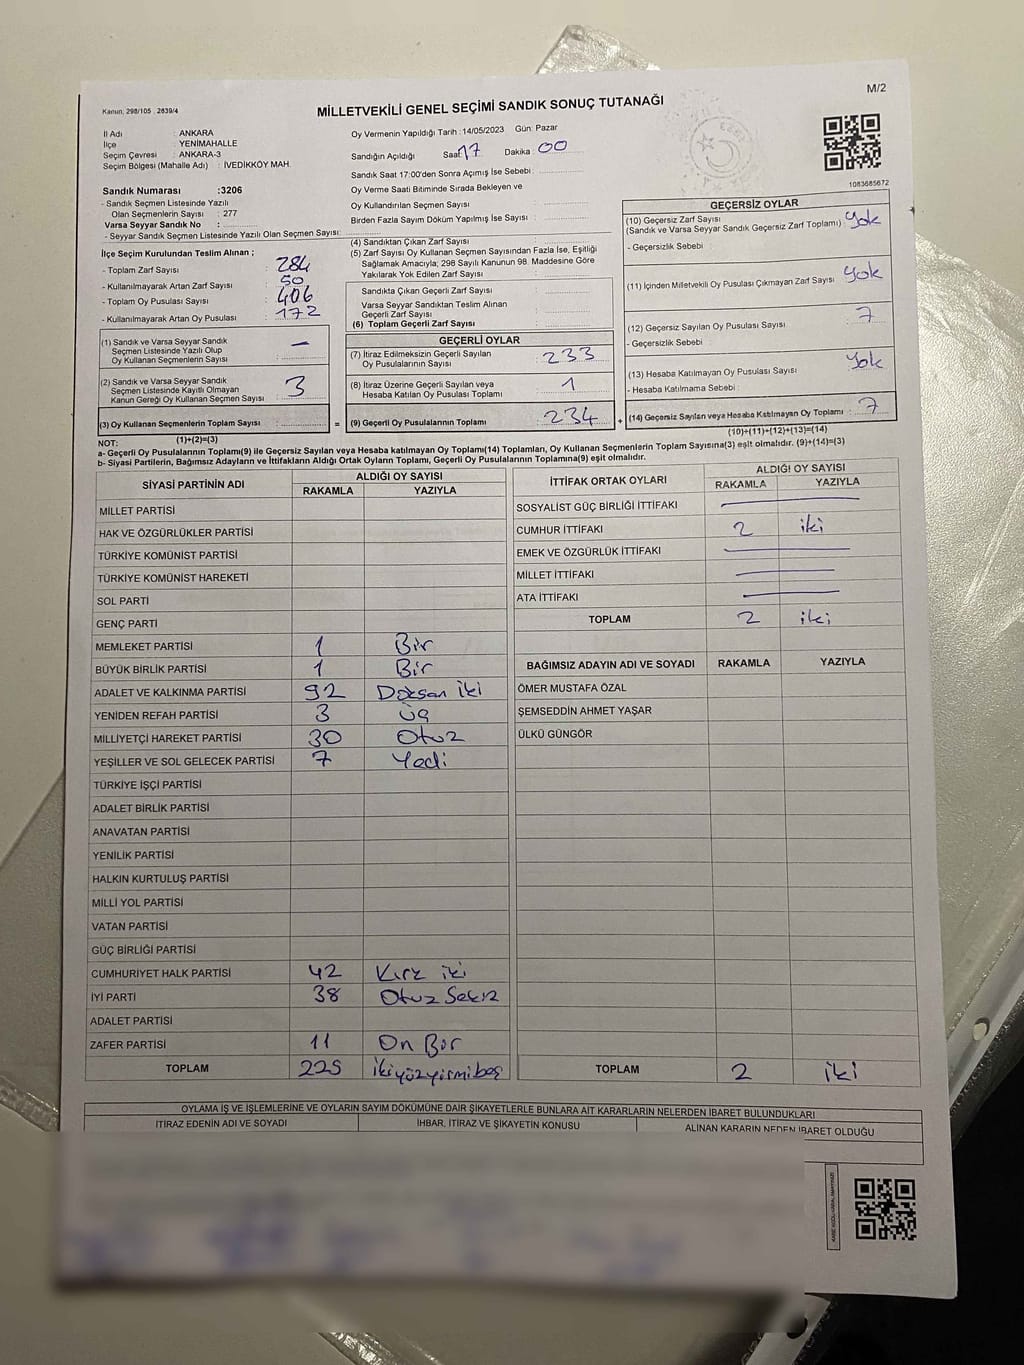 M/2
Kanun: 298/105 2839/4
MİLLETVEKİLİ GENEL SEÇİMİ SANDIK SONUÇ TUTANAĞI
İl Adı : ANKARA
İlçe : YENİMAHALLE
Seçim Çevresi : ANKARA-3
Seçim Bölgesi (Mahalle Adı) : İVEDİKKÖY MAH.
Sandık Numarası :3206
- Sandık Seçmen Listesinde Yazılı
Olan Seçmenlerin Sayısı : 277
Varsa Seyyar Sandık No :
- Seyyar Sandık Seçmen Listesinde Yazılı Olan Seçmen Sayısı:
İlçe Seçim Kurulundan Teslim Alınan ;
- Toplam Zarf Sayısı : 284
- Kullanılmayarak Artan Zarf Sayısı : 50
- Toplam Oy Pusulası Sayısı : 406
- Kullanılmayarak Artan Oy Pusulası : 172
(1) Sandık ve Varsa Seyyar Sandık
Seçmen Listesinde Yazılı Olup
Oy Kullanan Seçmenlerin Sayısı : —
(2) Sandık ve Varsa Seyyar Sandık
Seçmen Listesinde Kayıtlı Olmayan
Kanun Gereği Oy Kullanan Seçmen Sayısı : 3
(3) Oy Kullanan Seçmenlerin Toplam Sayısı :
(1)+(2)=(3)
Oy Vermenin Yapıldığı Tarih : 14/05/2023 Gün: Pazar
Sandığın Açıldığı Saat 17 Dakika : 00
Sandık Saat 17:00'den Sonra Açımış İse Sebebi :
Oy Verme Saati Bitiminde Sırada Bekleyen ve
Oy Kullandırılan Seçmen Sayısı :
Birden Fazla Sayım Döküm Yapılmış İse Sayısı :
(4) Sandıktan Çıkan Zarf Sayısı :
(5) Zarf Sayısı Oy Kullanan Seçmen Sayısından Fazla İse, Eşitliği
Sağlamak Amacıyla; 298 Sayılı Kanunun 98. Maddesine Göre
Yakılarak Yok Edilen Zarf Sayısı :
Sandıkta Çıkan Geçerli Zarf Sayısı :
Varsa Seyyar Sandıktan Teslim Alınan
Geçerli Zarf Sayısı :
(6) Toplam Geçerli Zarf Sayısı :
GEÇERLİ OYLAR
(7) İtiraz Edilmeksizin Geçerli Sayılan
Oy Pusulalarının Sayısı : 233
(8) İtiraz Üzerine Geçerli Sayılan veya
Hesaba Katılan Oy Pusulası Toplamı : 1
= (9) Geçerli Oy Pusulalarının Toplamı : 234
1083685672
GEÇERSİZ OYLAR
(10) Geçersiz Zarf Sayısı
(Sandık ve Varsa Seyyar Sandık Geçersiz Zarf Toplamı) : Yok
- Geçersizlik Sebebi :
(11) İçinden Milletvekili Oy Pusulası Çıkmayan Zarf Sayısı : Yok
(12) Geçersiz Sayılan Oy Pusulası Sayısı : 7
- Geçersizlik Sebebi :
(13) Hesaba Katılmayan Oy Pusulası Sayısı : Yok
- Hesaba Katılmama Sebebi :
+ (14) Geçersiz Sayılan veya Hesaba Katılmayan Oy Toplamı : 7
(10)+(11)+(12)+(13)=(14)
NOT:
a- Geçerli Oy Pusulaları Toplamı(9) ile Geçersiz Sayılan veya Hesaba katılmayan Oy Toplamı(14) Toplamları, Oy Kullanan Seçmenlerin Toplam Sayısına(3) eşit olmalıdır. (9)+(14)=(3)
b- Siyasi Partilerin, Bağımsız Adayların ve İttifakların Aldığı Ortak Oyların Toplamı, Geçerli Oy Pusulalarının Toplamına(9) eşit olmalıdır.
SİYASİ PARTİNİN ADI ALDIĞI OY SAYISI
RAKAMLA YAZIYLA
MİLLET PARTİSİ
HAK VE ÖZGÜRLÜKLER PARTİSİ
TÜRKİYE KOMÜNİST PARTİSİ
TÜRKİYE KOMÜNİST HAREKETİ
SOL PARTİ
GENÇ PARTİ
MEMLEKET PARTİSİ 1 Bir
BÜYÜK BİRLİK PARTİSİ 1 Bir
ADALET VE KALKINMA PARTİSİ 92 Doksan iki
YENİDEN REFAH PARTİSİ 3 üç
MİLLİYETÇİ HAREKET PARTİSİ 30 Otuz
YEŞİLLER VE SOL GELECEK PARTİSİ 7 Yedi
TÜRKİYE İŞÇİ PARTİSİ
ADALET BİRLİK PARTİSİ
ANAVATAN PARTİSİ
YENİLİK PARTİSİ
HALKIN KURTULUŞ PARTİSİ
MİLLİ YOL PARTİSİ
VATAN PARTİSİ
GÜÇ BİRLİĞİ PARTİSİ
CUMHURİYET HALK PARTİSİ 42 Kırk iki
İYİ PARTİ 38 Otuz Sekiz
ADALET PARTİSİ
ZAFER PARTİSİ 11 On Bir
TOPLAM 225 ikiyüzyirmibeş
İTTİFAK ORTAK OYLARI ALDIĞI OY SAYISI
RAKAMLA YAZIYLA
SOSYALİST GÜÇ BİRLİĞİ İTTİFAKI
CUMHUR İTTİFAKI 2 iki
EMEK VE ÖZGÜRLÜK İTTİFAKI
MİLLET İTTİFAKI
ATA İTTİFAKI
TOPLAM 2 iki
BAĞIMSIZ ADAYIN ADI VE SOYADI RAKAMLA YAZIYLA
ÖMER MUSTAFA ÖZAL
ŞEMSEDDİN AHMET YAŞAR
ÜLKÜ GÜNGÖR
TOPLAM 2 iki
OYLAMA İŞ VE İŞLEMLERİNE VE OYLARIN SAYIM DÖKÜMÜNE DAİR ŞİKAYETLERLE BUNLARA AİT KARARLARIN NELERDEN İBARET BULUNDUKLARI
İTİRAZ EDENİN ADI VE SOYADI İHBAR, İTİRAZ VE ŞİKAYETİN KONUSU ALINAN KARARIN NEDEN İBARET OLDUĞU